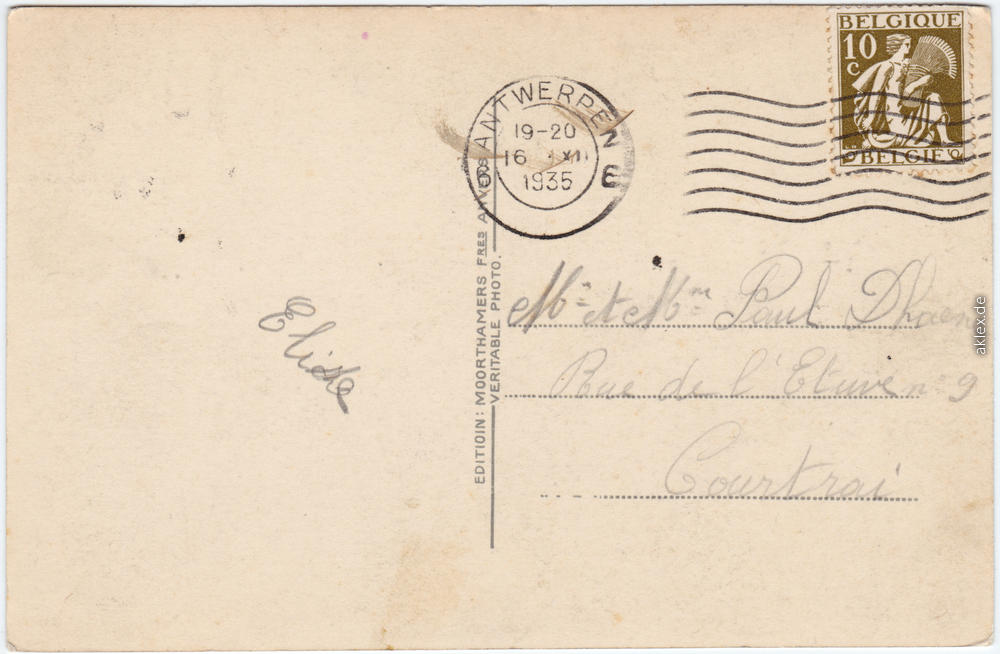 BELGIQUE
10
C
BELGIË
ANTWERPEN
19-20
16 XII
1935
6 6
EDITIOIN: MOORTHAMERS FRES ANVERS
VERITABLE PHOTO.
Mr et Mme Paul Dhaen
Rue de l'Etuve n 9
Courtrai
aklex.de